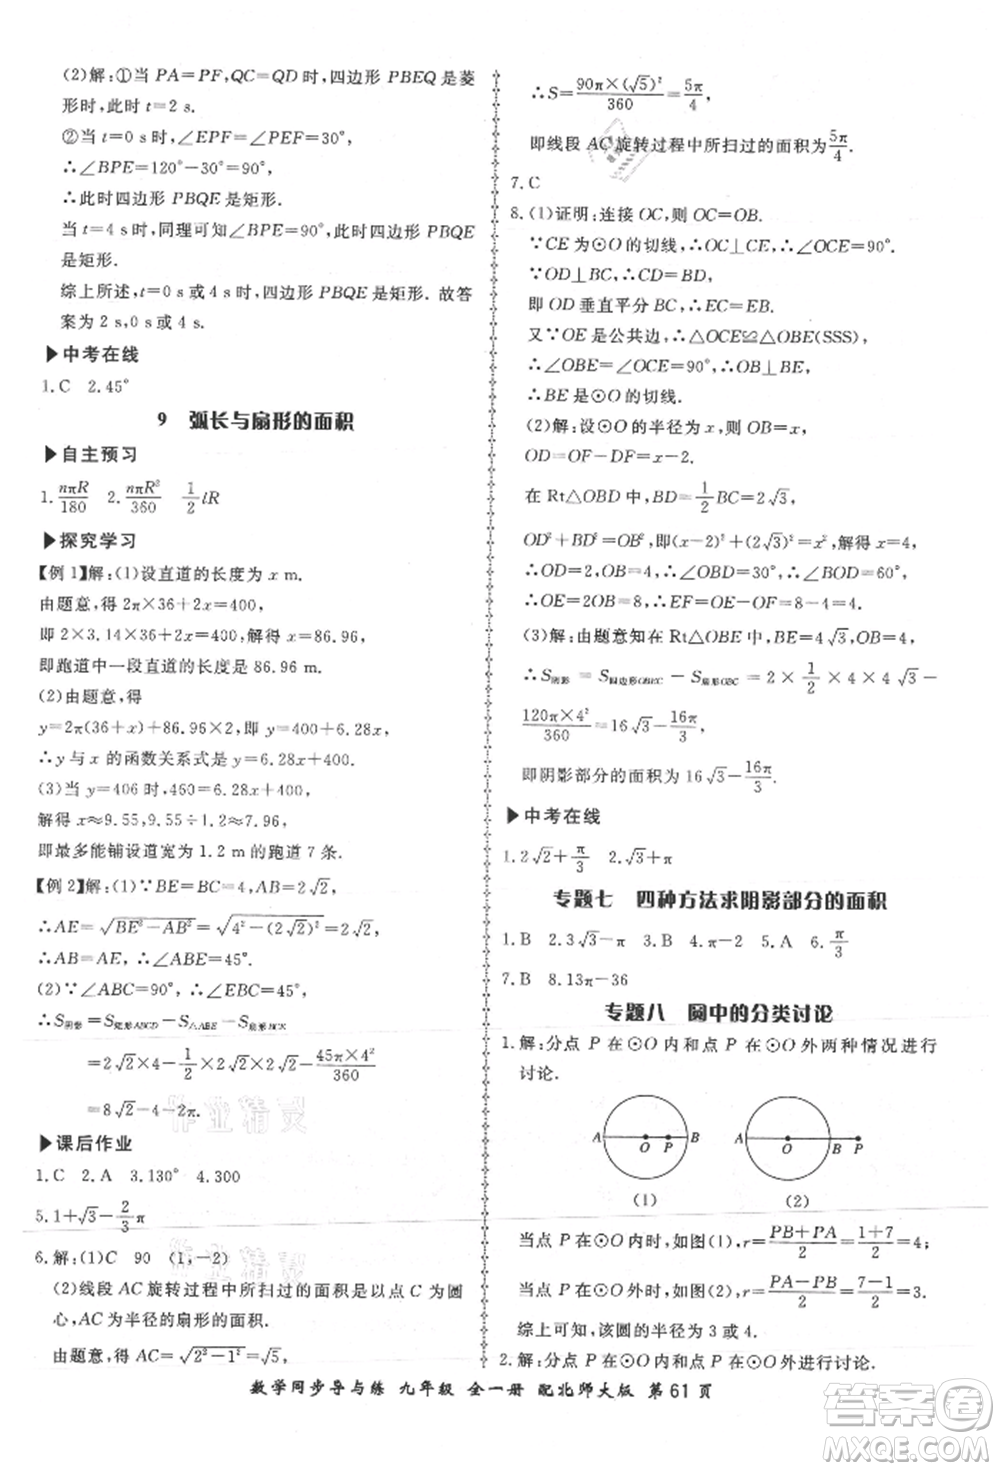 (2)解:①当 PA=PF,QC=QD 时,四边形 PBEQ 是菱
形时,此时 t=2 s.
②当 t=0 s 时,∠EPF=∠PEF=30°,
∴∠BPE=120°-30°=90°,
∴此时四边形 PBQE 是矩形.
当 t=4 s 时,同理可知∠BPE=90°,四边形 PBQE
是矩形.
综上所述,t=0 s或 4 s 时,四边形 PBQE 是矩形. 故答
案为 2 s,0 s或 4 s.
▶中考在线
1.C 2.45°
9 弧长与扇形的面积
▶自主预习
1. nπR/180 2. nπR²/360 1/2 lR
▶探究学习
【例 1】解:(1)设直道的长度为 x m.
由题意,得 2π×36+2x=400,
即 2×3.14×36+2x=400,解得 x=86.96,
即跑道中一段直道的长度是 86.96 m.
(2)由题意,得
y=2π(36+x)+86.96×2,即 y=400+6.28x,
∴y 与 x 的函数关系式是 y=6.28x+400.
(3)当 y=406 时,460=6.28x+400,
解得 x≈9.55,9.55÷1.2≈7.96,
即最多能铺设道宽为 1.2 m 的跑道 7 条.
【例 2】解:(1)∵BE=BC=4,AB=2√2,
∴AE=√(BE²-AB²)=√(4²-(2√2)²)=2√2,
∴AB=AE,∴∠ABE=45°.
(2)∵∠ABC=90°,∴∠EBC=45°,
∴S阴影=S矩形ABCD-S△ABE-S扇形BCE
=4×2√2-1/2×2√2×2√2-45π×4²/360
=8√2-4-2π.
▶课后作业
1.C 2.A 3.130° 4.300
5.1+√3-2/3π
6.解:(1)C 90 (1,-2)
(2)线段 AC 旋转过程中所扫过的面积是以点 C 为圆
心,AC 为半径的扇形的面积.
由题意,得 AC=√(2²-1²)=√5,
∴S=90π×(√5)²/360=5π/4,
即线段 AC 旋转过程中所扫过的面积为5π/4.
7.C
8.(1)证明:连接 OC,则 OC=OB.
∵CE 为⊙O 的切线,∴OC⊥CE,∴∠OCE=90°.
∵OD⊥BC,∴CD=BD,
即 OD 垂直平分 BC,∴EC=EB.
又∵OE 是公共边,∴△OCE≌△OBE(SSS),
∴∠OBE=∠OCE=90°,∴OB⊥BE,
∴BE 是⊙O 的切线.
(2)解:设⊙O 的半径为 x,则 OB=x,
OD=OF-DF=x-2.
在 Rt△OBD 中,BD=1/2BC=2√3,
OD²+BD²=OB²,即(x-2)²+(2√3)²=x²,解得 x=4,
∴OD=2,OB=4,∴∠OBD=30°,∴∠BOD=60°,
∴OE=2OB=8,∴EF=OE-OF=8-4=4.
(3)解:由题意知在 Rt△OBE 中,BE=4√3,OB=4,
∴S阴影=S四边形OBEC-S扇形OBC=2×1/2×4×4√3-
120π×4²/360=16√3-16π/3,
即阴影部分的面积为 16√3-16π/3.
▶中考在线
1.2√2+π/3 2.√3+π
专题七 四种方法求阴影部分的面积
1.B 2.3√3-π 3.B 4.π-2 5.A 6.π/3
7.B 8.13π-36
专题八 圆中的分类讨论
1.解:分点 P 在⊙O 内和点 P 在⊙O 外两种情况进行
讨论.
A O P B A O B P
(1) (2)
当点 P 在⊙O 内时,如图(1),r=(PB+PA)/2=(1+7)/2=4;
当点 P 在⊙O 外时,如图(2),r=(PA-PB)/2=(7-1)/2=3.
综上可知,该圆的半径为 3 或 4.
2.解:分圆心 O 在△ABC 的内部和外部两种情况讨论.
数学同步导与练 九年级 全一册 配北师大版 第 61 页
答案卷
MXQE.COM
作业精灵